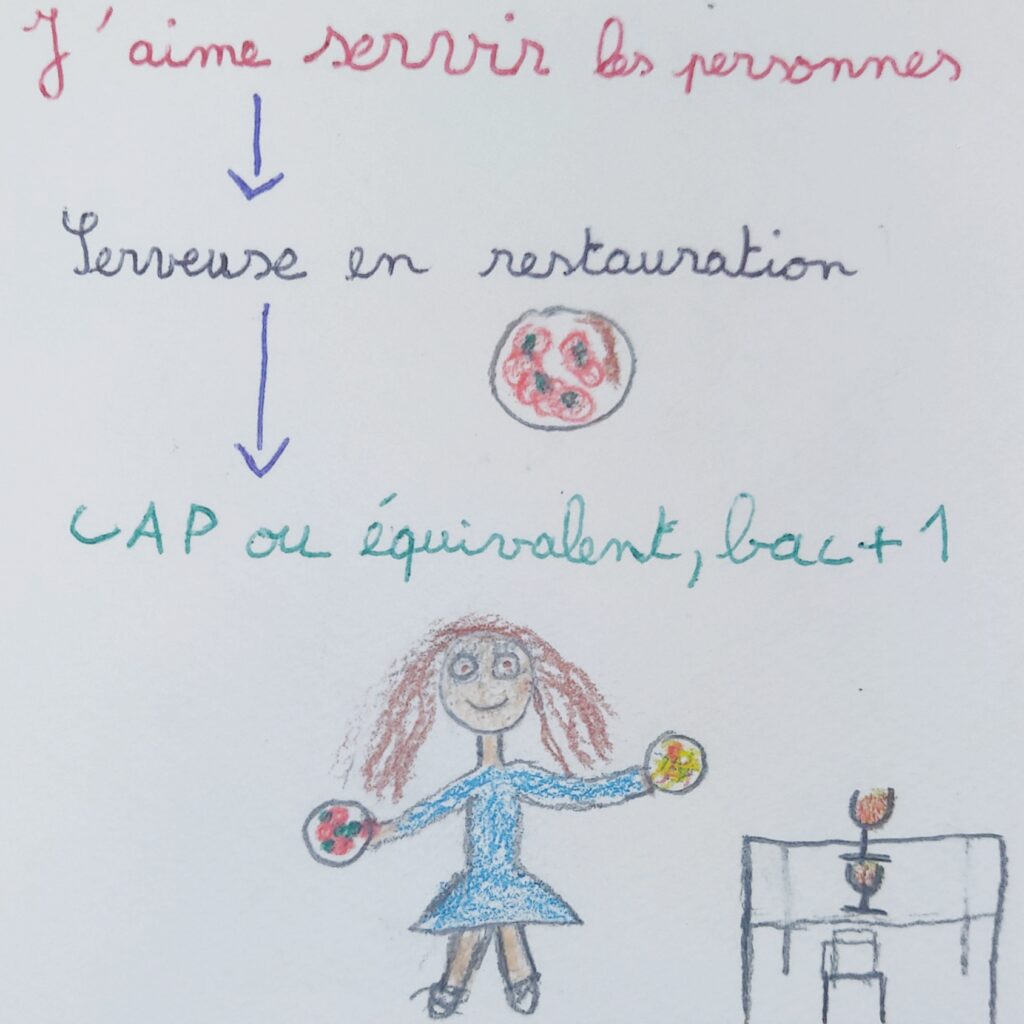 J'aime servir les personnes
Serveuse en restauration
CAP ou équivalent, bac+1